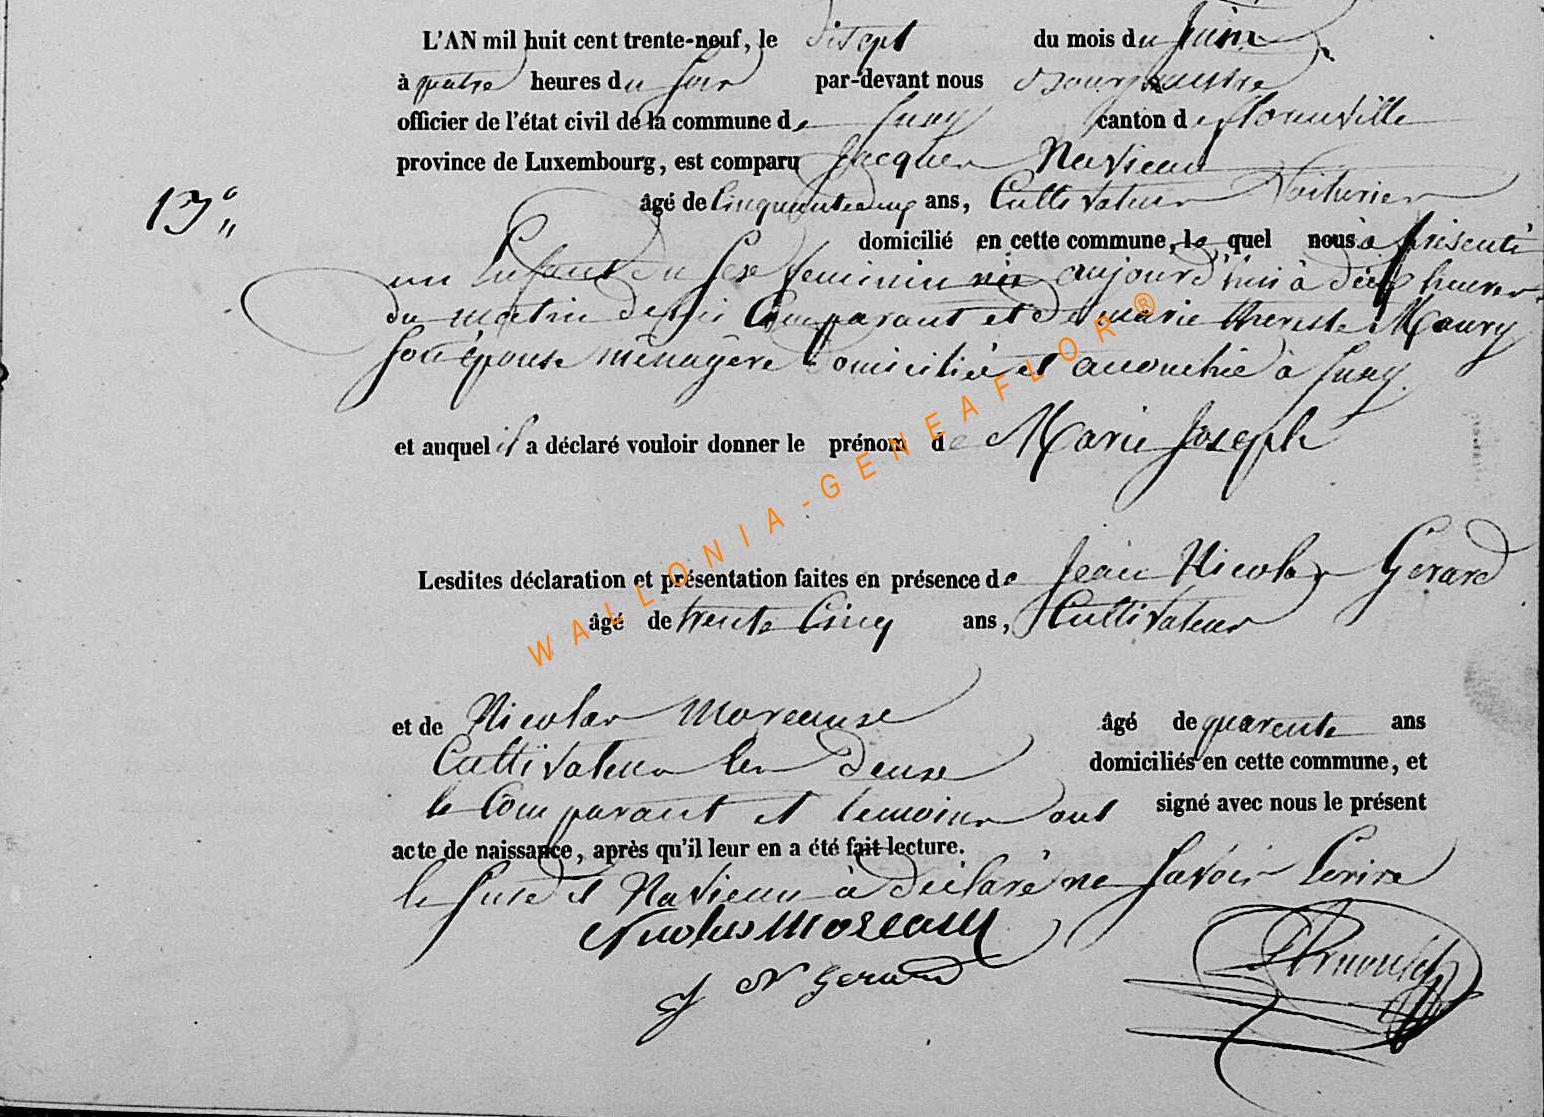 L'AN mil huit cent trente-neuf, le disept du mois du Juin
à quatre heures du soir par-devant nous Bourgmestre
officier de l'état civil de la commune de Suxy canton de florenville
province de Luxembourg, est comparu Jacques Navieau
13° âgé de Cinquante cinq ans, Cultivateur Voiturier
domicilié en cette commune, le quel nous a présenté
un Enfant du sexe feminin née aujourd'hui à dix heures
du matin de lui Comparant et de marie therese Maury
son épouse ménagère domiciliée et accouchée à Suxy.
et auquel il a déclaré vouloir donner le prénom de Marie Joseph
Lesdites déclaration et présentation faites en présence de Jean Nicolas Gerard
âgé de trente Cinq ans, Cultivateur
et de Nicolas Moreause âgé de quarente ans
Cultivateur les Deuse domiciliés en cette commune, et
le Comparant et temoins ont signé avec nous le présent
acte de naissance, après qu'il leur en a été fait lecture.
le susdit Navieau à déclaré ne savoir Ecrire
Nicolas Moreaux
J N Gerard
WALLONIA-GENEAFLOR®